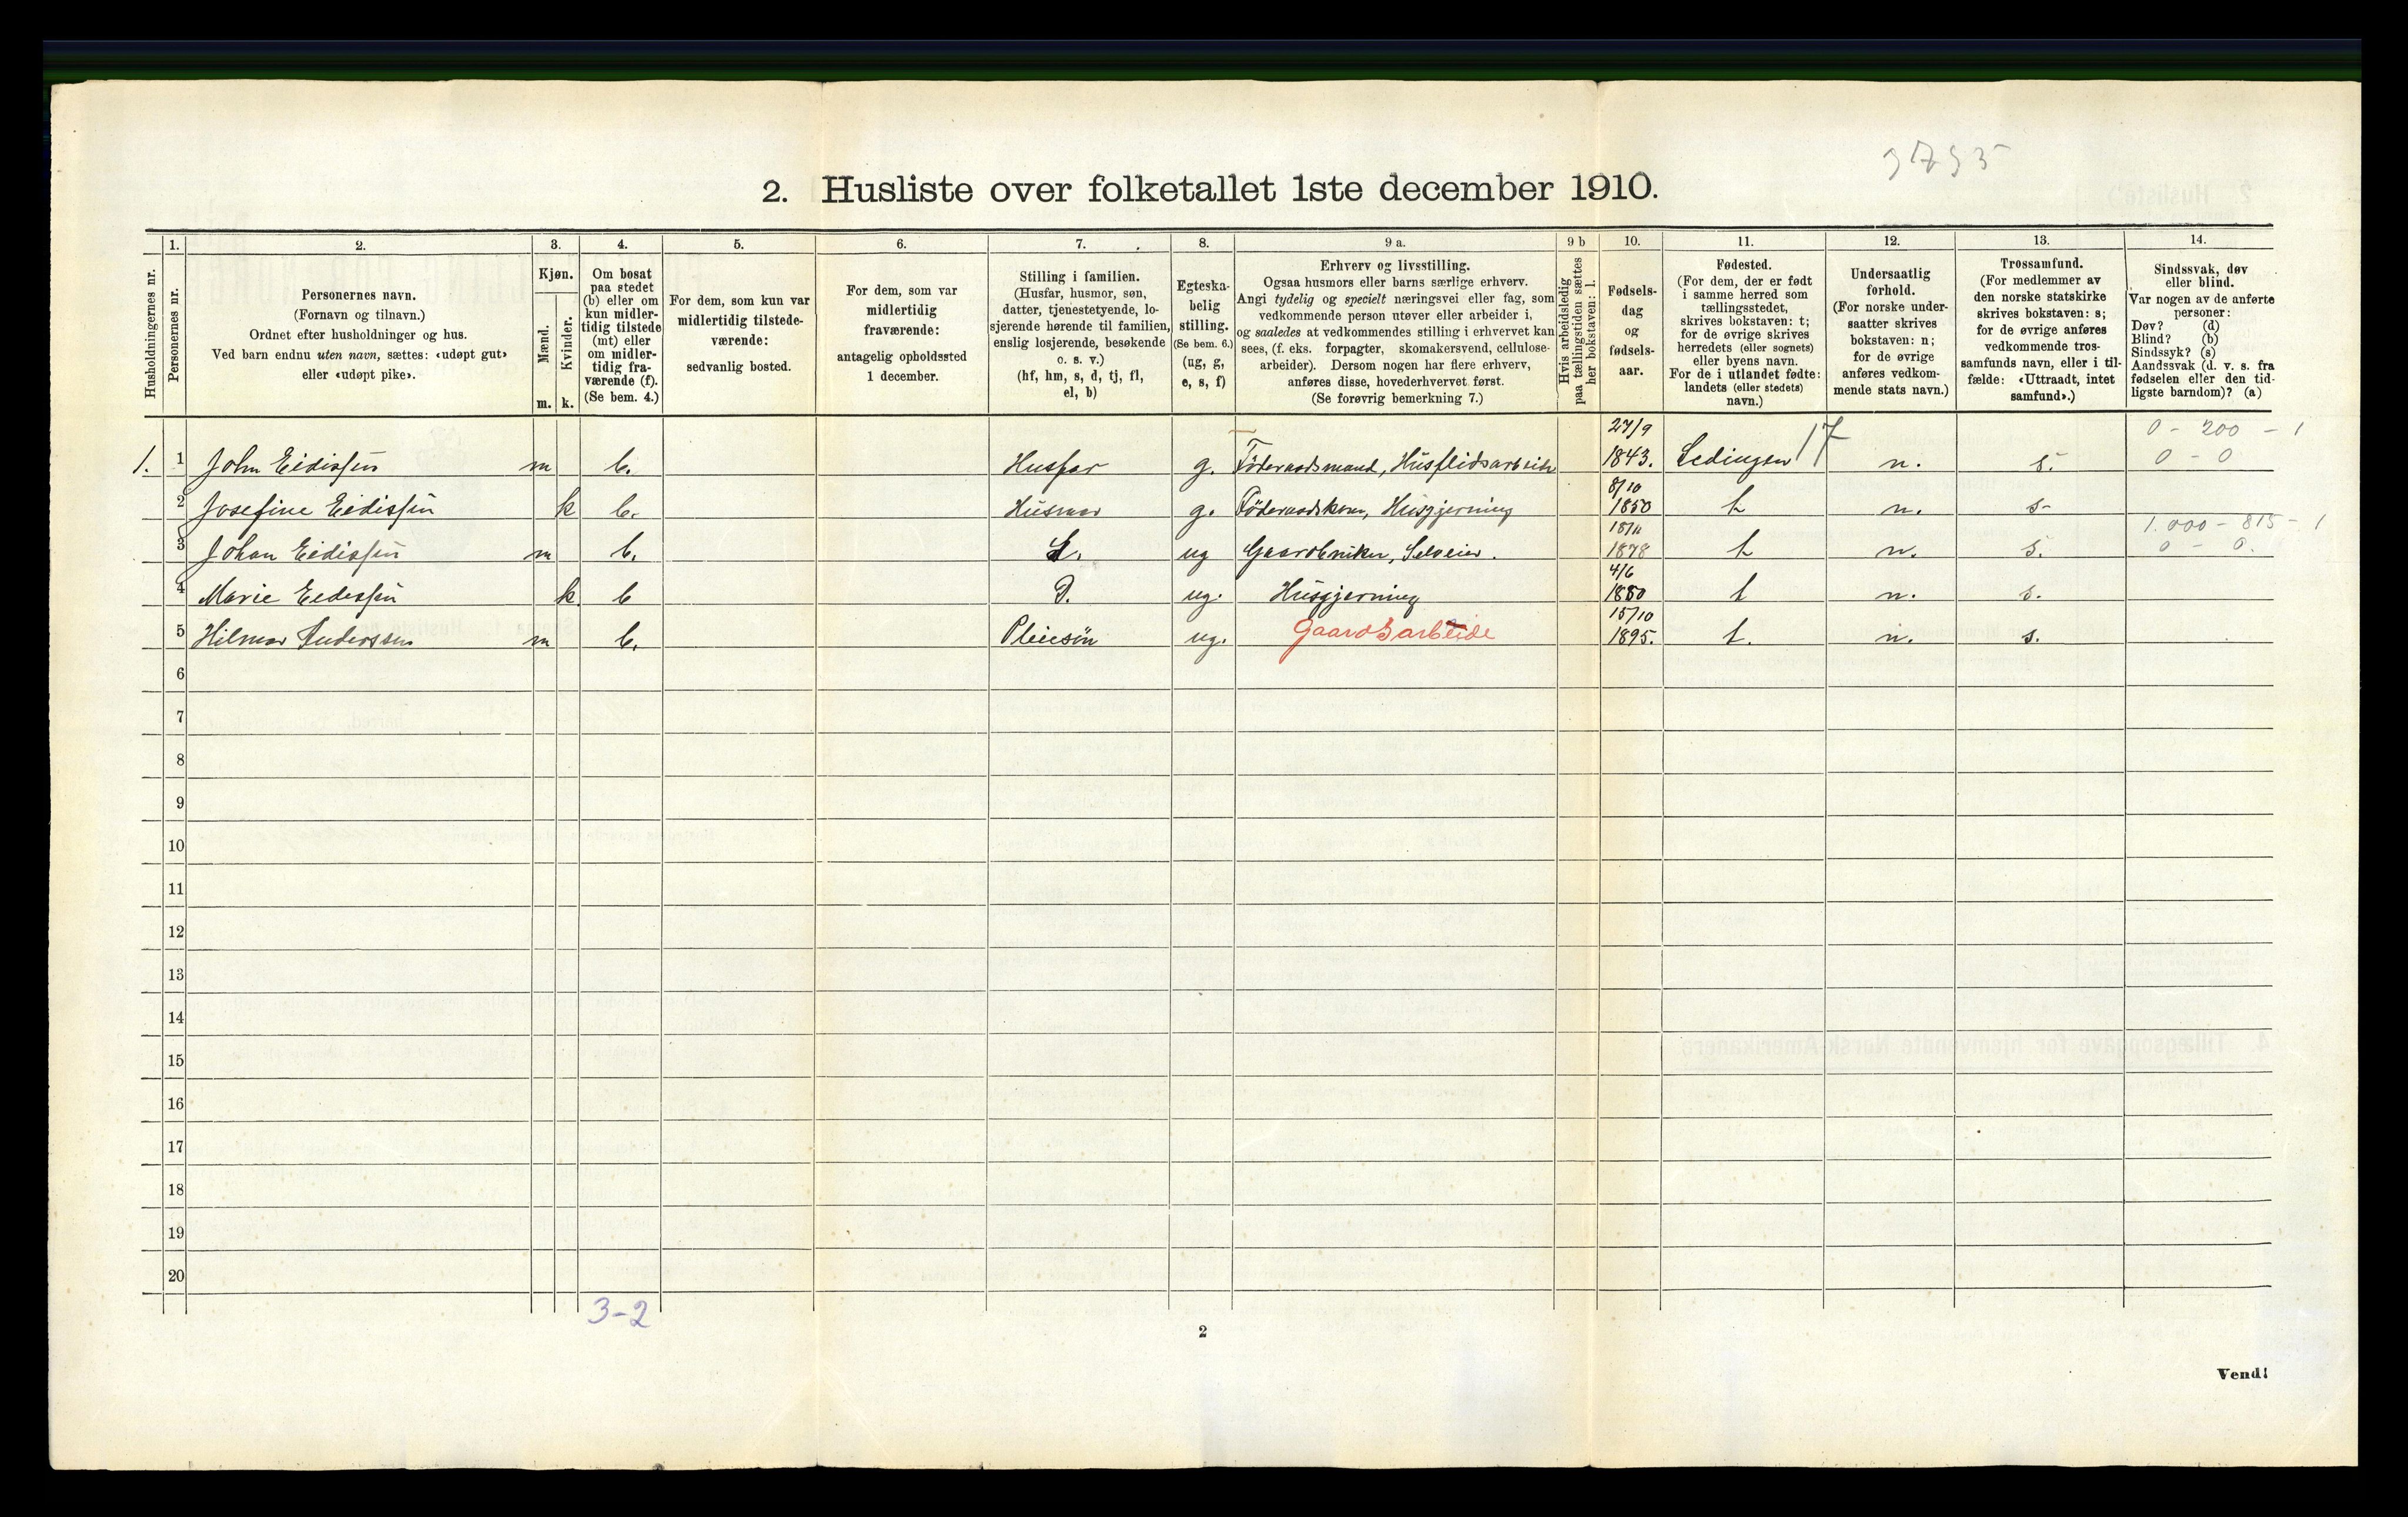 3795
2. Husliste over folketallet 1ste december 1910.
Husholdningernes nr.
1.
Personernes nr.
2.
Personernes navn.
(Fornavn og tilnavn.)
Ordnet efter husholdninger og hus.
Ved barn endnu uten navn, sættes: «udøpt gut»
eller «udøpt pike».
3.
Kjøn.
Mænd.
Kvinder.
m. k.
4.
Om bosat
paa stedet
(b) eller om
kun midler-
tidig tilstede
(mt) eller
om midler-
tidig fra-
værende (f).
(Se bem. 4.)
5.
For dem, som kun var
midlertidig tilstede-
værende:
sedvanlig bosted.
6.
For dem, som var
midlertidig
fraværende:
antagelig opholdssted
1 december.
7.
Stilling i familien.
(Husfar, husmor, søn,
datter, tjenestetyende, lo-
sjerende hørende til familien,
enslig losjerende, besøkende
o. s. v.)
(hf, hm, s, d, tj, fl,
el, b)
8.
Egteska-
belig
stilling.
(Se bem. 6.)
(ug, g,
e, s, f)
9 a.
Erhverv og livsstilling.
Ogsaa husmors eller barns særlige erhverv.
Angi tydelig og specielt næringsvei eller fag, som
vedkommende person utøver eller arbeider i,
og saaledes at vedkommendes stilling i erhvervet kan
sees, (f. eks. forpagter, skomakersvend, cellulose-
arbeider). Dersom nogen har flere erhverv,
anføres disse, hovederhvervet først.
(Se forøvrig bemerkning 7.)
9 b
Hvis arbeidsledig
paa tællingstiden sættes
her bokstaven: l.
10.
Fødsels-
dag
og
fødsels-
aar.
11.
Fødested.
(For dem, der er født
i samme herred som
tællingsstedet,
skrives bokstaven: t;
for de øvrige skrives
herredets (eller sognets)
eller byens navn.
For de i utlandet fødte:
landets (eller stedets)
navn.)
12.
Undersaatlig
forhold.
(For norske under-
saatter skrives
bokstaven: n;
for de øvrige
anføres vedkom-
mende stats navn.)
13.
Trossamfund.
(For medlemmer av
den norske statskirke
skrives bokstaven: s;
for de øvrige anføres
vedkommende tros-
samfunds navn, eller i til-
fælde: «Uttraadt, intet
samfund».)
14.
Sindssvak, døv
eller blind.
Var nogen av de anførte
personer:
Døv? (d)
Blind? (b)
Sindssyk? (s)
Aandssvak (d. v. s. fra
fødselen eller den tid-
ligste barndom)? (a)
27/9 0 - 200 - 1
1. 1 John Eidissen m b. Husfar g. Föderaadsmand, Husflidsarbeide 1843. Lødingen 17 n. s. 0 - 0
8/10
2 Josefine Eidissen k b. Husmor g. Föderaadskone, Husgjerning 1850 t n. s-
18/11 1.000 - 815 - 1
3 Johan Eidissen m b. S. ug Gaardbruker, Selveier. 1878 t n. s. 0 - 0.
4/6
4 Marie Eidessen k. b D. ug. Husgjerning 1880 t n. s.
15/10
5 Hilmar Anderssen m b. Pleiesön ug. Gaardsarbeide 1895. t. n. s.
6
7
8
9
10
11
12
13
14
15
16
17
18
19
20
3-2
2
Vend!